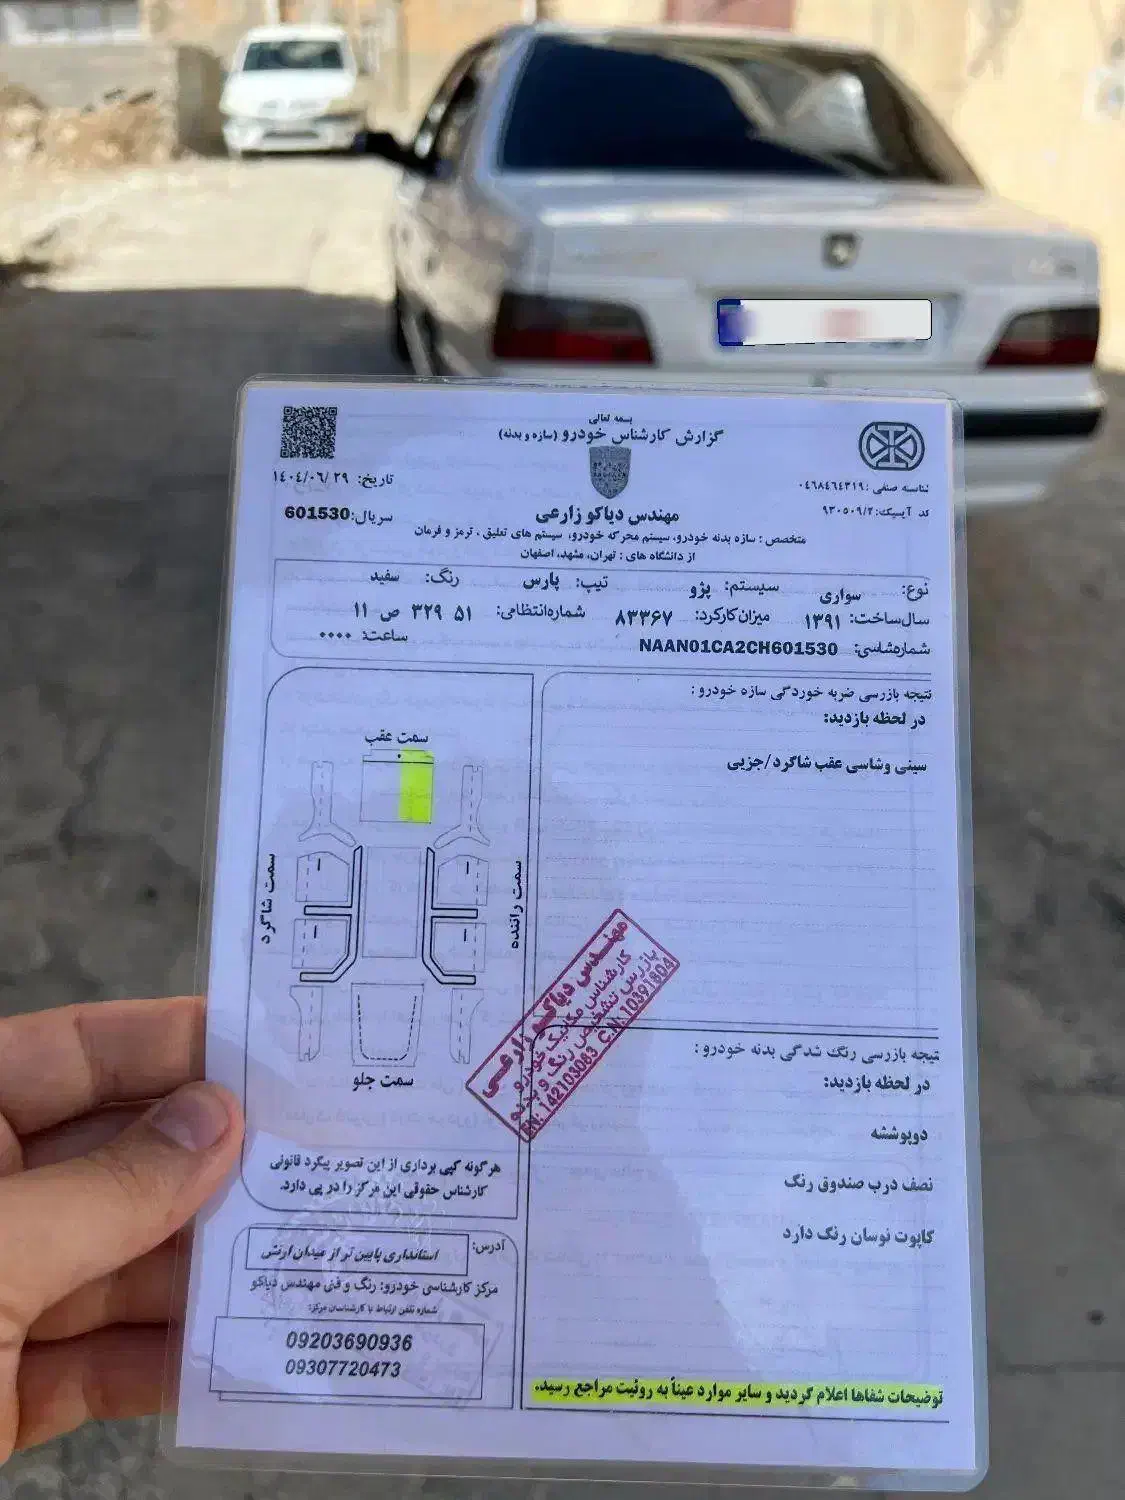 بسمه تعالی
گزارش کارشناس خودرو (سازه و بدنه)
شناسه صنفی: ۰۴۶۸۴۶۴۳۱۹
کد آیسیک: ۹۳۰۵۰۹/۲
تاریخ: ۱۴۰۴/۰۶/۲۹
سریال: 601530
مهندس دیاکو زارعی
متخصص : سازه بدنه خودرو، سیستم محرکه خودرو، سیستم های تعلیق ، ترمز و فرمان
از دانشگاه های : تهران، مشهد، اصفهان
نوع: سواری سیستم: پژو تیپ: پارس رنگ: سفید
سال ساخت: ۱۳۹۱ میزان کارکرد: ۸۳۳۶۷ شماره انتظامی: ۵۱ ۳۲۹ ص ۱۱
شماره شاسی: NAAN01CA2CH601530 ساعت: ۰۰۰۰
نتیجه بازرسی ضربه خوردگی سازه خودرو :
در لحظه بازدید:
سینی وشاسی عقب شاگرد/جزیی
سمت عقب
سمت شاگرد
سمت راننده
سمت جلو
مهندس دیاکو زارعی
کارشناس مکانیک خودرو
بازرس تشخیص رنگ و بدنه
EN: 142103063 C.N: 10391804
نتیجه بازرسی رنگ شدگی بدنه خودرو :
در لحظه بازدید:
دوپوششه
نصف درب صندوق رنگ
کاپوت نوسان رنگ دارد
توضیحات شفاها اعلام گردید و سایر موارد عیناً به روئیت مراجع رسید.
هرگونه کپی برداری از این تصویر پیگرد قانونی
کارشناس حقوقی این مرکز را در پی دارد.
آدرس: استانداری پایین تر از میدان ارتش
مرکز کارشناسی خودرو: رنگ و فنی مهندس دیاکو
شماره تلفن ارتباط با کارشناسان مرکز:
09203690936
09307720473